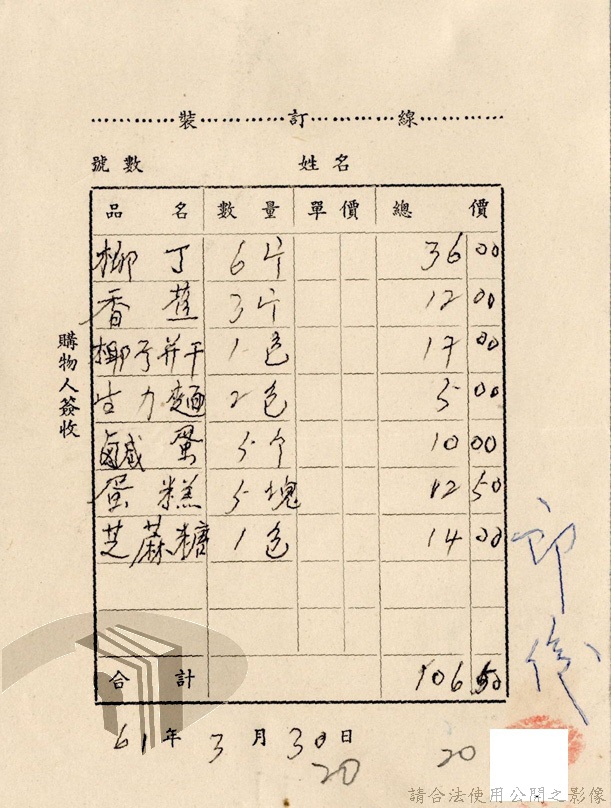 裝 訂 線
號 數 姓 名
品 名 數 量 單 價 總 價
柳 丁 6 斤 36 00
香 蕉 3 斤 12 00
椰子并干 1 包 17 00
生 力 麵 2 包 5 00
鹹 蛋 5 个 10 00
蛋 糕 5 塊 12 50
芝 蔴 糖 1 包 14 00
合 計 106 50
購物人簽收
61 年 3 月 30 日
20
20
請合法使用公開之影像